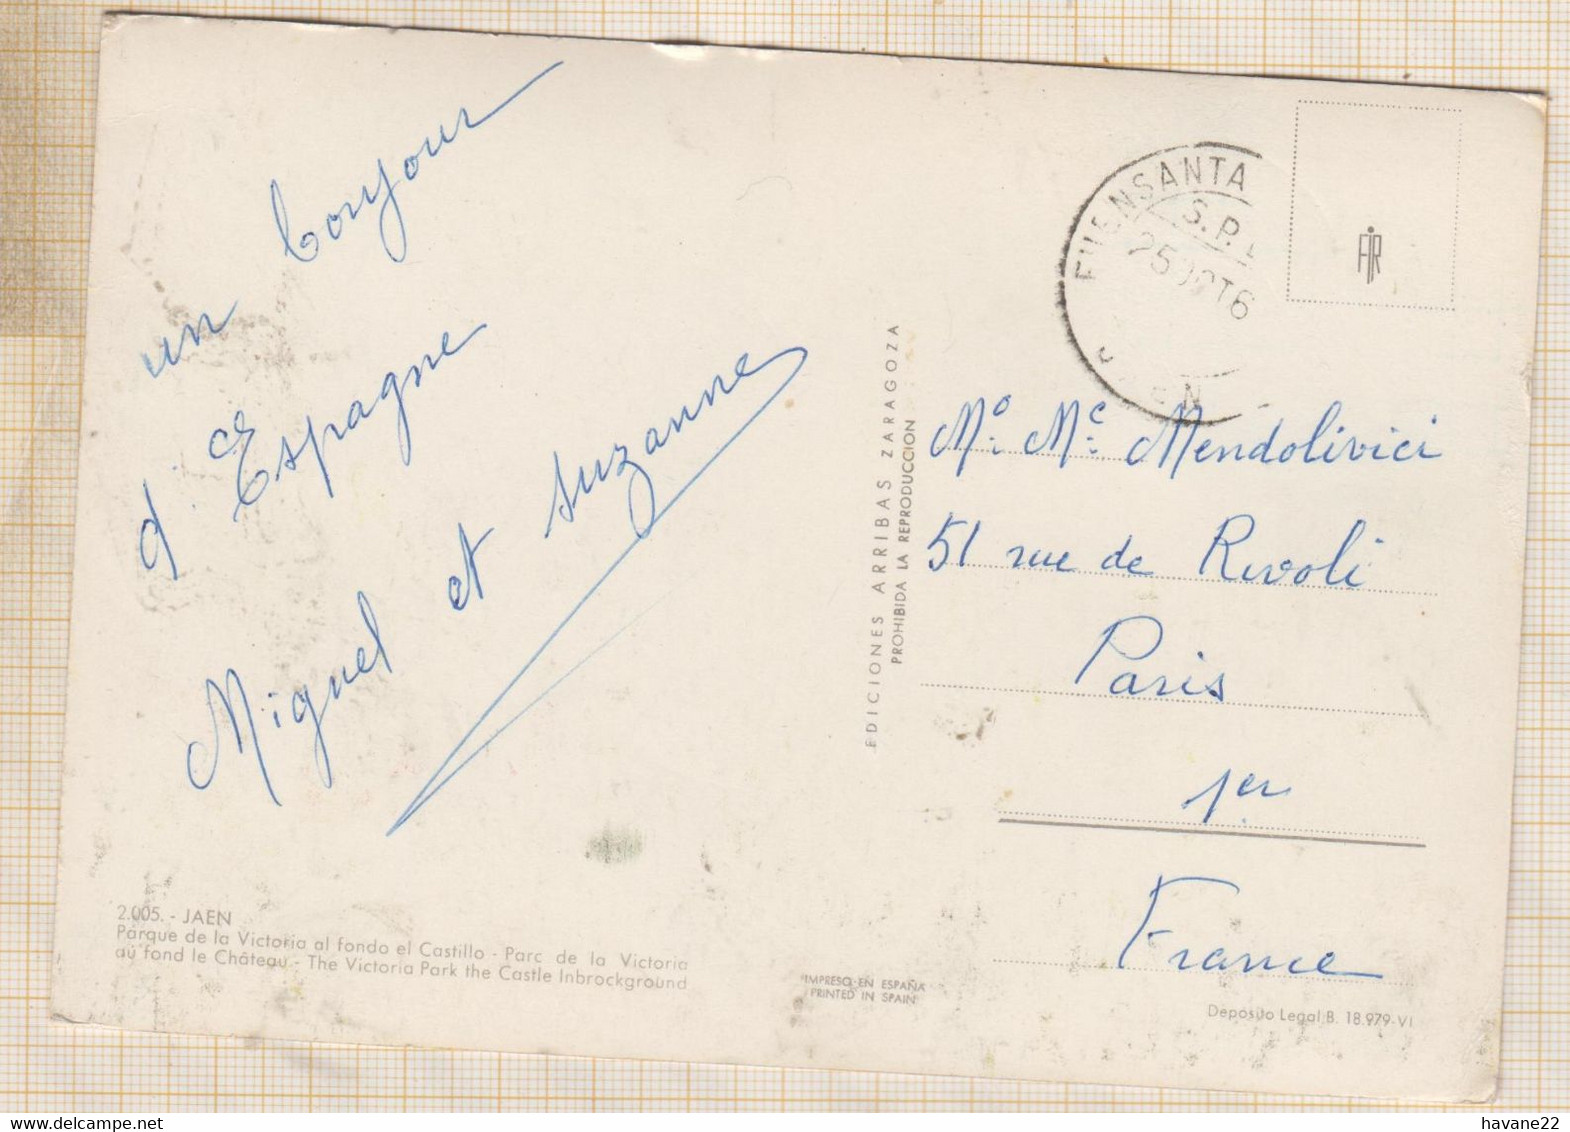 un bonjour
d'Espagne
Miguel et Suzanne
2.005. - JAEN
Parque de la Victoria al fondo el Castillo - Parc de la Victoria
aú fond le Château - The Victoria Park the Castle Inbrockground
EDICIONES ARRIBAS ZARAGOZA
PROHIBIDA LA REPRODUCCION
IMPRESO EN ESPAÑA
PRINTED IN SPAIN
FUENSANTA
S.P.
25 OCT 6
AIR
Mo. Me. Mendolivici
51 rue de Rivoli
Paris
1er
France
Depósito Legal B. 18.979-VI
havane22